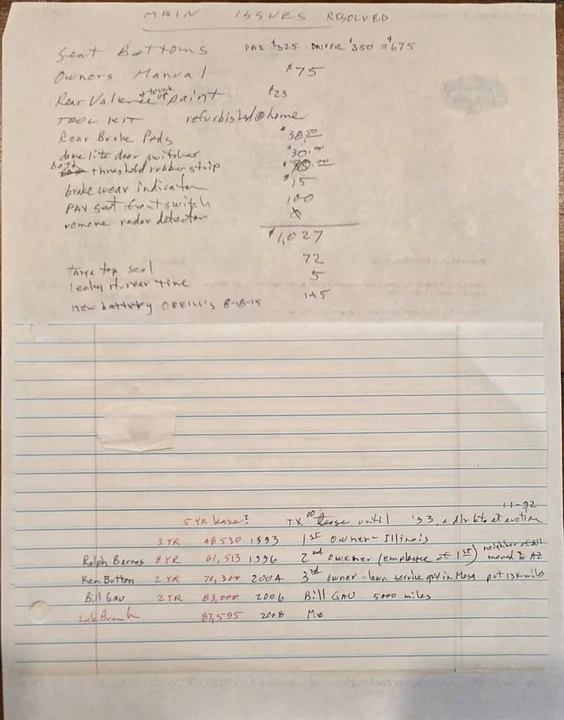 MAIN ISSUES RESOLVED
Seat Bottoms PAX $325 DRIVER $350 = $675
Owners Manual $75
Rear Valence + touch up paint $23
TOOL KIT refurbished @ home
Rear Brake Pads $38.50
dome lite door switches $30.00
both threshold rubber strip .00
brake wear indicator $15
PAX seat front switch 100
remove radar detector
$1,027
targa top seal 72
leaky rt. rear tire 5
new battery OREILL'S 8-18-15 145
11-92
5 YR lease? TX lease until '93, a at auction
3 YR 48530 1993 1st owner - Illinois
Ralph Barnes 8 YR 61,513 1996 2nd owner (employee of 1st) neighbor of moved to AZ
Ken Button 2 YR 76,300 2004 3rd owner - lawn service guy in Mesa put 13K miles
Bill Gau 2 YR 83,000 2006 Bill GAU 5000 miles
87,595 2008 Me